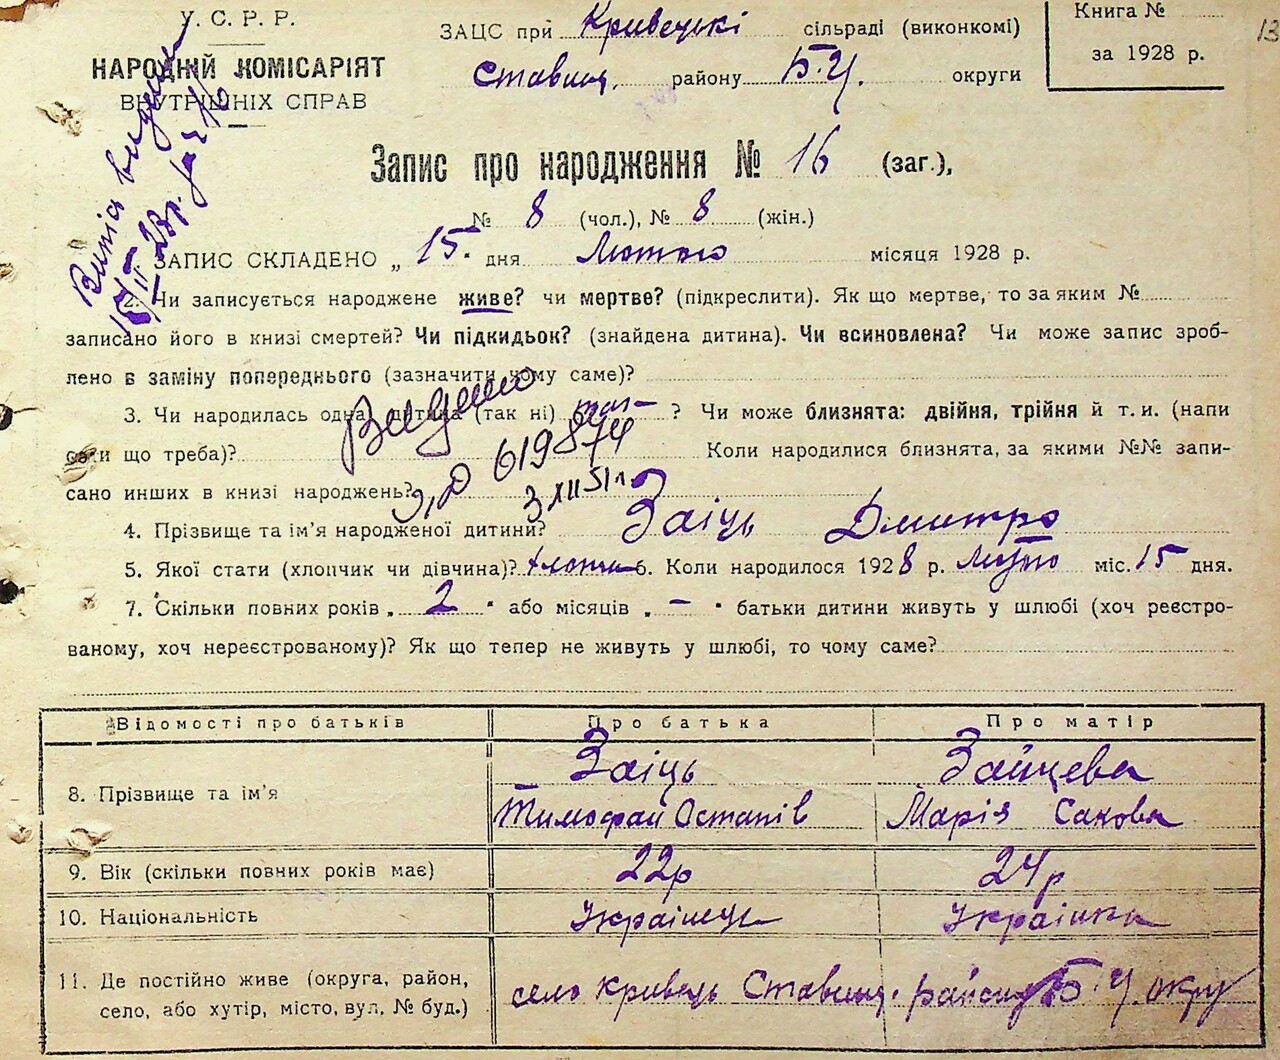 У. С. Р. Р.
НАРОДНІЙ КОМІСАРІЯТ
ВНУТРІШНІХ СПРАВ
ЗАЦС при Кривецькі сільраді (виконкомі)
Ставищ. району Б.Ц. округи
Книга №
за 1928 р.
13
Запис про народження № 16 (заг.),
№ 8 (чол.), № 8 (жін.)
ЗАПИС СКЛАДЕНО „ 15 " дня Лютого місяця 1928 р.
2. Чи записується народжене живе? чи мертве? (підкреслити). Як що мертве, то за яким №
записано його в книзі смертей? Чи підкидьок? (знайдена дитина). Чи всиновлена? Чи може запис зроб-
лено в заміну попереднього (зазначити чому саме)?
3. Чи народилась одна дитина (так ні) так ? Чи може близнята: двійня, трійня й т. и. (напи
сати що треба)? Коли народилися близнята, за якими №№ запи-
сано инших в книзі народжень?
Видано
619874
3 XII 51 г.
4. Прізвище та ім'я народженої дитини? Заіць Дмитро
5. Якої стати (хлопчик чи дівчина)? хлопч 6. Коли народилося 1928 р. Люто міс. 15 дня.
7. Скільки повних років „ 2 " або місяців „ – " батьки дитини живуть у шлюбі (хоч реєстро-
ваному, хоч нереєстрованому)? Як що тепер не живуть у шлюбі, то чому саме?
Відомості про батьків Про батька Про матір
8. Прізвище та ім'я Заіць Зайцева
Тимофай Остапів Марія Сакова
9. Вік (скільки повних років має) 22р 24р
10. Національність Українець Українка
11. Де постійно живе (округа, район,
село, або хутір, місто, вул. № буд.)
село Кривець Ставищ. району Б.Ц. окру